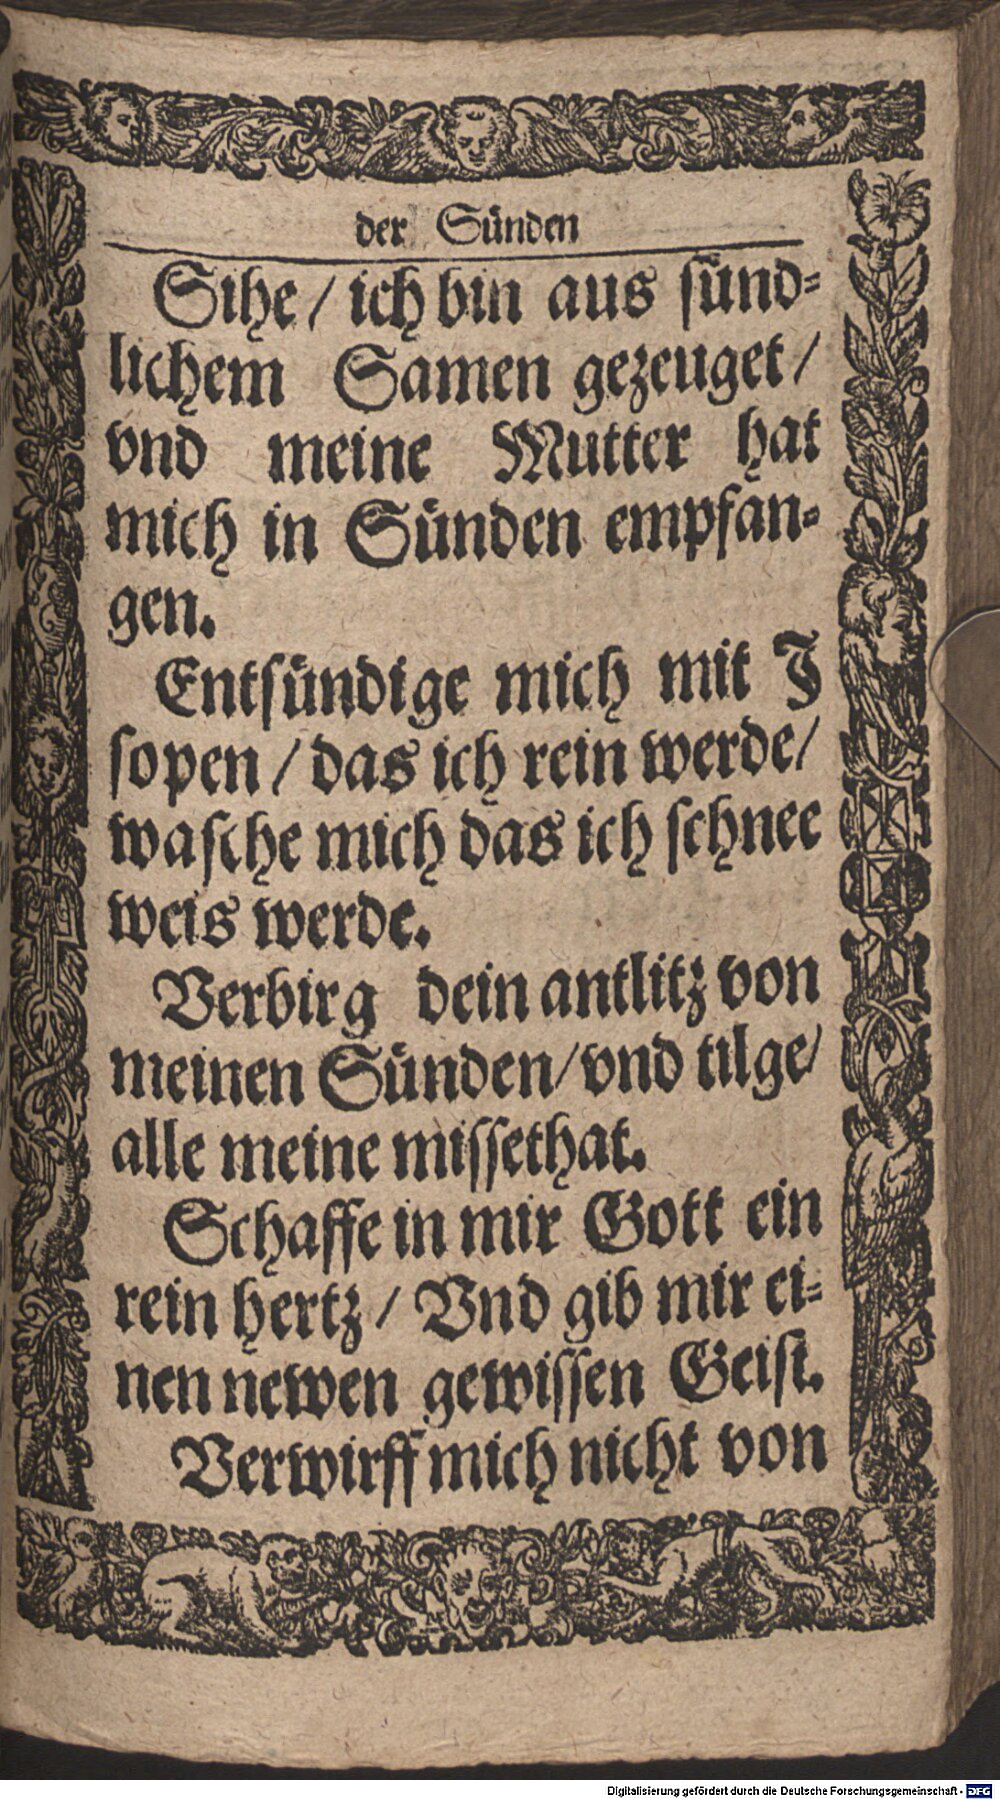 der Sünden
Sihe / ich bin aus sünd⸗
lichem Samen gezeuget /
vnd meine Mutter hat
mich in Sünden empfan⸗
gen.
Entsündige mich mit J
sopen / das ich rein werde /
wasche mich das ich schnee
weis werde.
Verbirg dein antlitz von
meinen Sünden / vnd tilge /
alle meine missethat.
Schaffe in mir Gott ein
rein hertz / Vnd gib mir ei⸗
nen newen gewissen Geist.
Verwirff mich nicht von
Digitalisierung gefördert durch die Deutsche Forschungsgemeinschaft - DFG